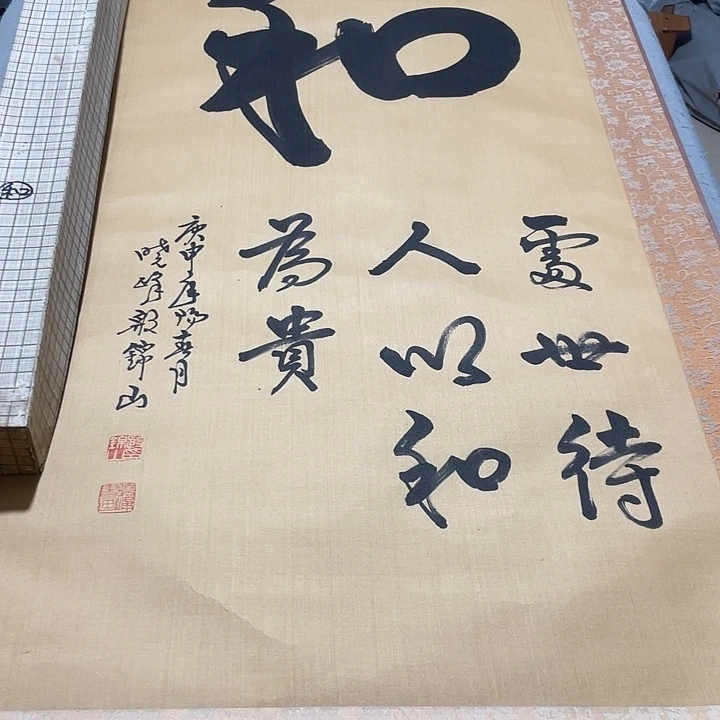 和
處世待
人以和
為貴
庚申年陽春月
曉峰 錦山
和